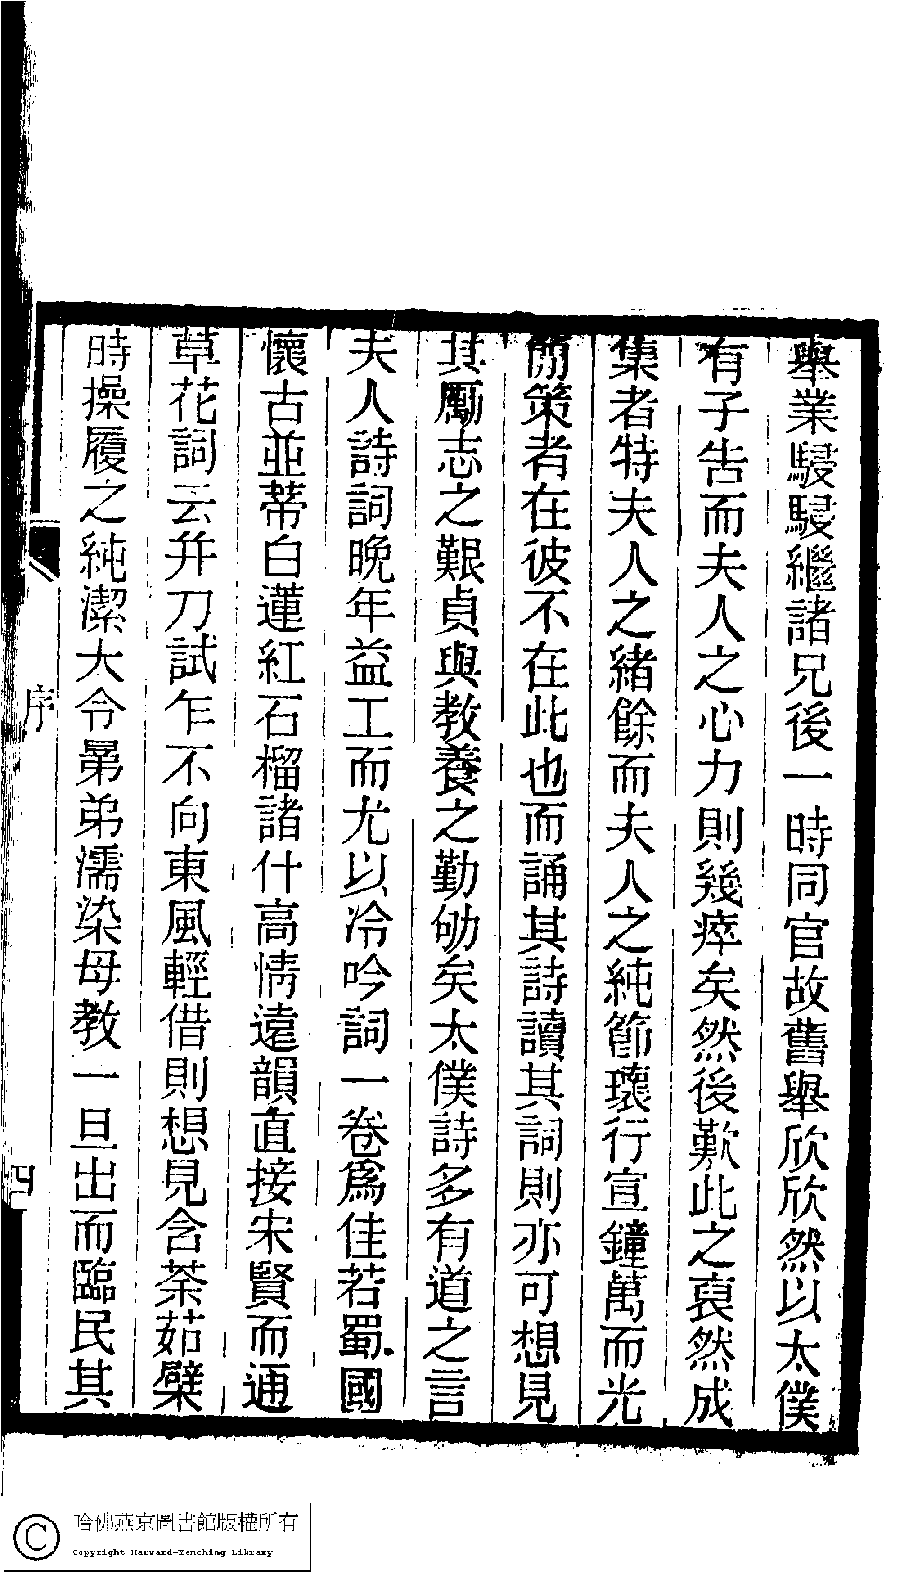 舉業駸駸繼諸兄後一時同官故舊舉欣欣然以太僕
有子告而夫人之心力則幾瘁矣然後歎此之裒然成
集者特夫人之緒餘而夫人之純節瓌行宣鐘萬而光
簡策者在彼不在此也而誦其詩讀其詞則亦可想見
其勵志之艱貞與教養之勤劬矣太僕詩多有道之言
夫人詩詞晚年益工而尤以冷吟詞一卷爲佳若蜀國
懷古並蒂白蓮紅石榴諸什高情遠韻直接宋賢而通
草花詞云并刀試乍不向東風輕借則想見含荼茹櫱
時操履之純潔大令晜弟濡染母教一旦出而臨民其
序
四
哈佛燕京圖書館版權所有
Copyright Harvard-Yenching Library